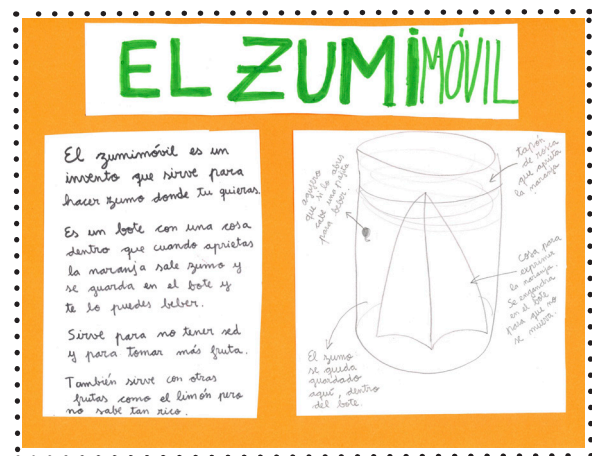 EL ZUMIMÓVIL
El zumimóvil es un
invento que sirve para
hacer zumo donde tu quieras.
Es un bote con una cosa
dentro que cuando aprietas
la naranja sale zumo y
se guarda en el bote y
te lo puedes beber.
Sirve para no tener sed
y para tomar más fruta.
También sirve con otras
frutas como el limón pero
no sabe tan rico.
agujero
que si lo abres
cabe una pajita
para beber.
tapón
de rosca
que aprieta
la naranja
Cosa para
exprimir
la naranja.
Se engancha
en el bote
para que no
se mueva.
El zumo
se queda
guardado
aquí, dentro
del bote.